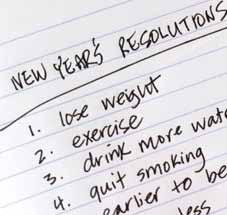 NEW YEAR'S RESOLUTIONS
1. lose weight
2. exercise
3. drink more wat
4. quit smoking
earlier to be
less